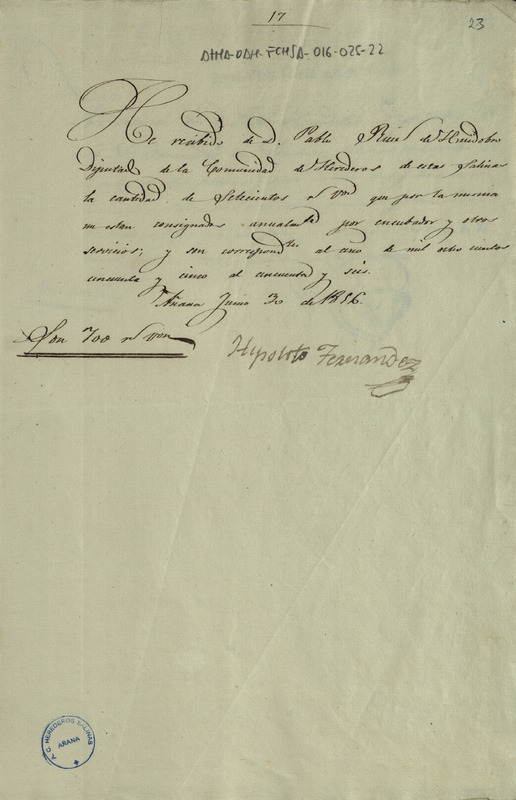 17
23
ATHA-DAH-FCHSA-016-025-22
He recibido de D. Pablo Ruiz de Huidobro
Diputado de la Comunidad de Herederos de estas Salinas
la cantidad de Setecientos rs von que por la misma
me estan consignados anualmte por encubador y otros
servicios; y son correspondtes al año de mil ocho cientos
cincuenta y cinco al cincuenta y seis.
Añana Junio 30 de 1856.
Son 700 rs von
Hipolito Fernandez
Y C. HEREDEROS SALINAS
AÑANA